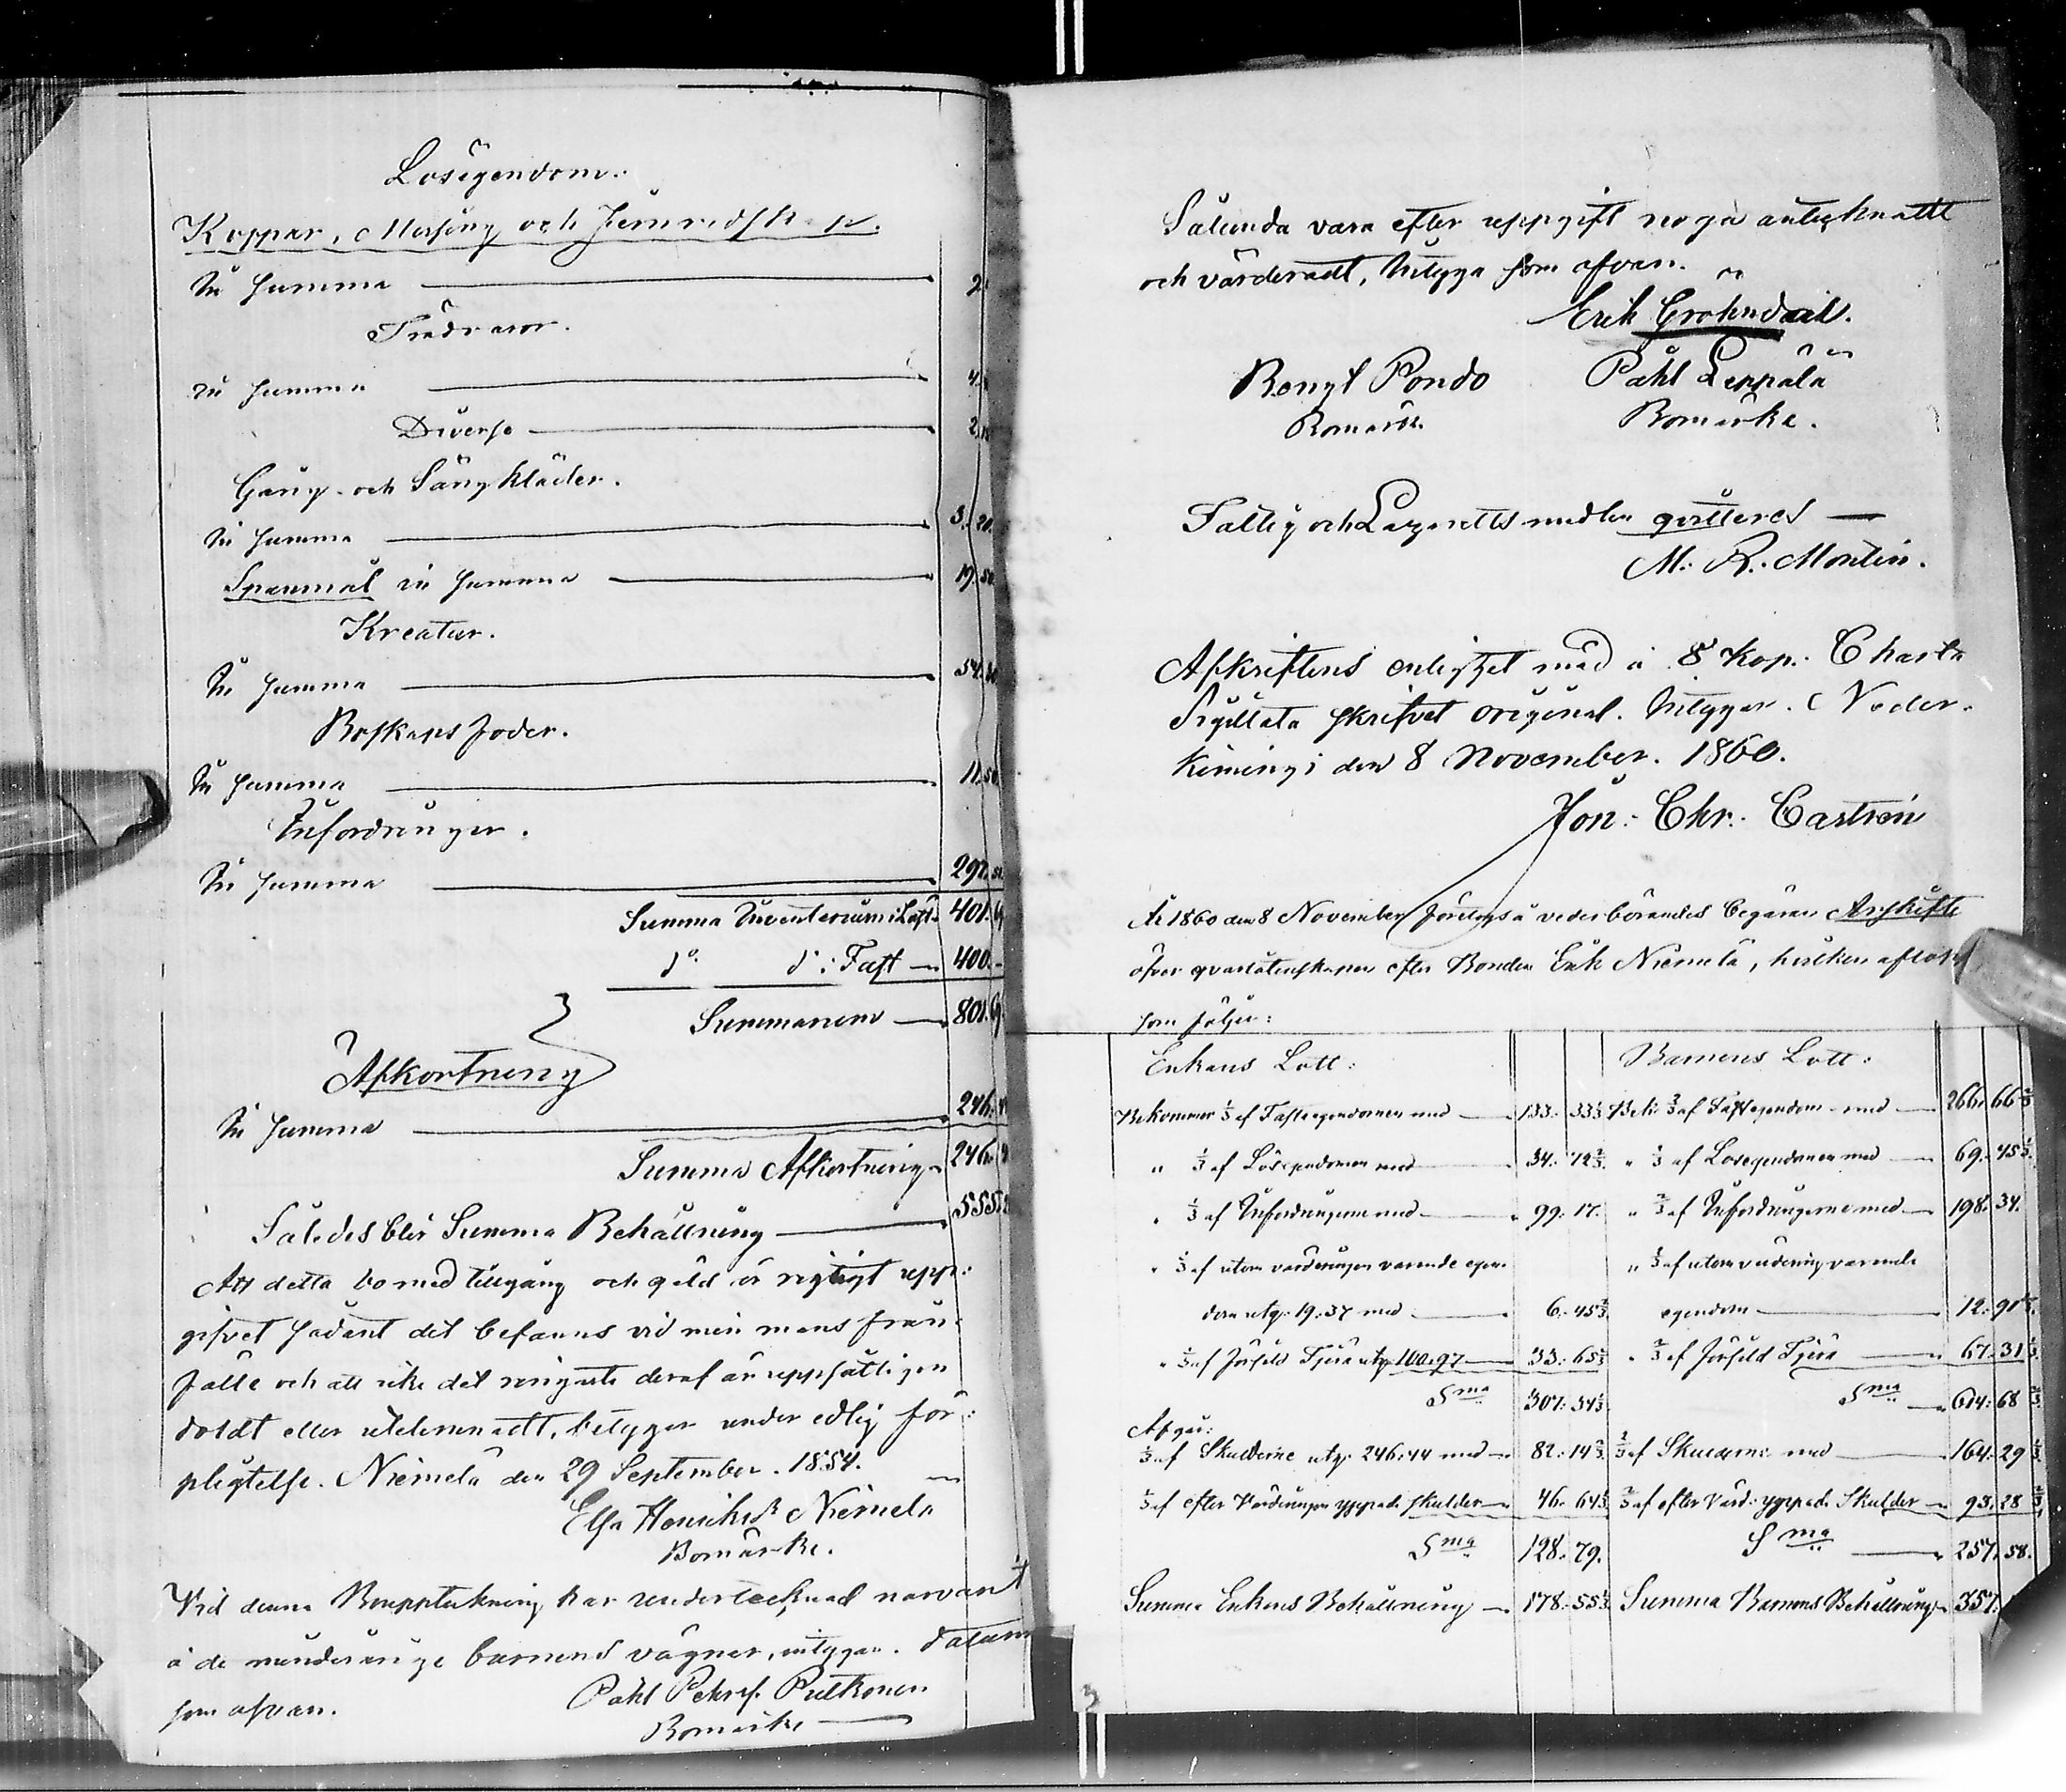 Lösegendom.
Koppar, Messing och Jernredskap.
In summa 2.
Trädvaror.
in summa 4.
Diverse 2.
Gång- och Sängkläder.
In summa 3. 20.
Spanmål in summa 19. 50.
Kreatur.
In summa 54.
Boskapsfoder.
In summa 11. 50
Infordringar.
In summa 297. 51.
Summa Inventarium i Löst 401.
d:o d:o i Fast 400. -
Summarum 801.
Afkortning
In summa 246.
Summa Afkortning 246.
Således blir Summa Behållning 555.
Att detta bo med tillgång och gäld är rigtigt upp-
gifvet sådant det befanns vid min mans från-
fälle och att icke det ringaste deraf är uppsåtligen
doldt eller utelemnadt, betygar under edlig för-
pligtelse. Niemelä den 29 September. 1854.
Elsa Henriksd:r Niemelä
Bomärke.
Vid denna Bouppteckning har undertecknad närvarit
å de minderårige barnens vägnar, intygar. Datum
som ofvan.
Påhl Pehrss. Pulkonen
Bomärke
Sålunda vara efter uppgift noga antecknadt
och värderadt, intyga som ofvan.
Erik Gröhndahl.
Bengt Pondo Påhl Leppälä
Bomärke. Bomärke.
Fattig och Lazaretts medlen qvitteras
M. R. Montin.
Afskriftens enlighet med å 8 Kop. Charta
Sigillata skrifvet original. Intygar. Neder-
kimingi den 8 November. 1860.
Jon. Chr. Castrén
År 1860 den 8 November företogs å vederbörandes begäran Arfskifte
öfver qvarlåtenskapen efter Bonden Erik Niemelä, hvilken aflopp
som följer:
Enkans Lott: Barnens Lott:
Bekommer 1/3 af Fasta egendomen med 133. 33 1/3 Bek: 2/3 af Fast egendom med 266. 66 2/3
" 1/3 af Lösegendomen med 34. 72 2/3 " 2/3 af Lösegendomen med 69. 45 1/3
" 1/3 af Infordringarne med 99. 17. " 2/3 af Infordringarne med 198. 34.
" 1/3 af utom värderingen varande egen- " 2/3 af utom värdering varande
dom utg. 19:37 med 6. 45 2/3 egendom 12. 91 1/3
" 1/3 af försåld Tjära utg. 100.97 33. 65 2/3 " 2/3 af försåld Tjära 67. 31 1/3
S:ma 307. 34 1/3 S:ma 614. 68 2/3
Afgår:
1/3 af Skulderne utg. 246:44 med 82. 14 2/3 2/3 af Skulderne med 164. 29 1/3
1/3 af efter Värderingen yppade skulder 46. 64 1/3 2/3 af efter Värd: yppade Skulder 93. 28 2/3
S:ma 128. 79. S:ma 257. 58.
Summa Enkans Behållning 178. 55 1/3 Summa Barnens Behållning 357.